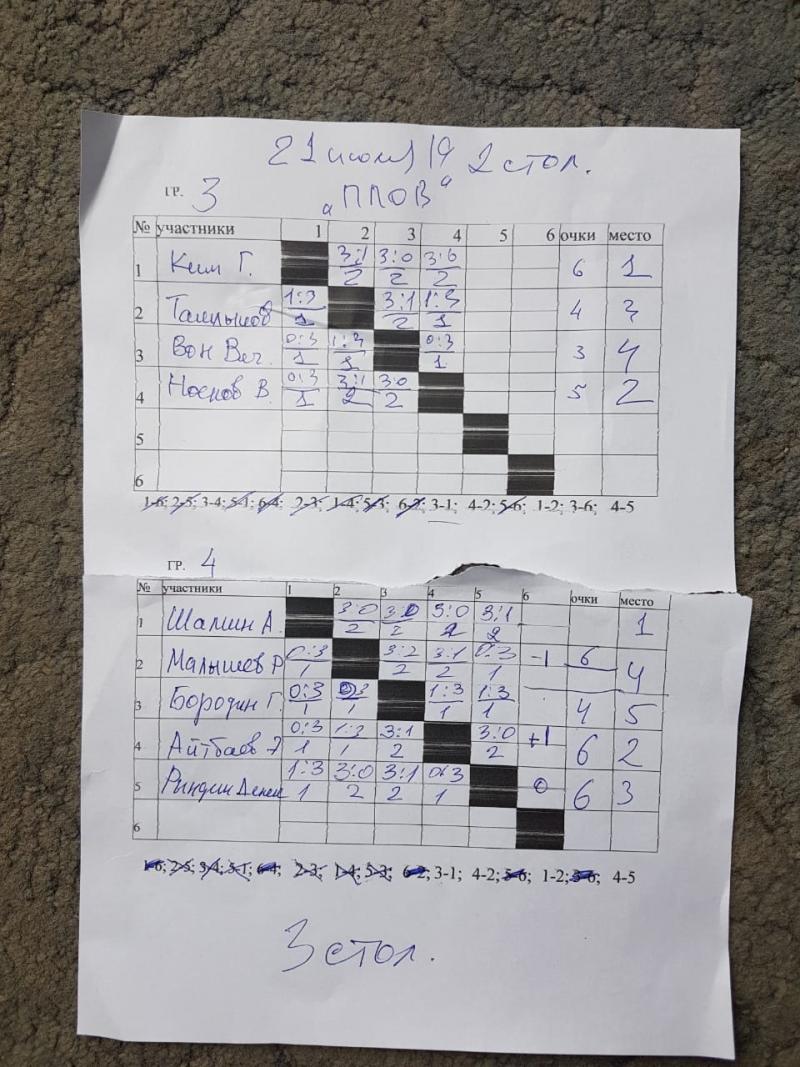 21 июля 19 2 стол.
гр. 3 "ПЛОВ"
№ участники 1 2 3 4 5 6 очки место
1 Ким Г. 3:1 3:0 3:0 6 1
2 2 2
2 1:3 3:1 1:3 4 3
1 2 1
3 Вон 0:3 1:3 0:3 3 4
1 1 1
4 Носков В. 0:3 3:1 3:0 5 2
1 2 2
5
6
1-6; 2-5; 3-4; 5-1; 6-4; 2-3; 1-4; 5-3; 6-2; 3-1; 4-2; 5-6; 1-2; 3-6; 4-5
гр. 4
№ участники 1 2 3 4 5 6 очки место
1 Шамин А. 3:0 3:0 3:0 3:1 1
2 2 2 2
2 Малышев Р 0:3 3:2 3:1 0:3 -1 6 4
1 2 2 1
3 Бородин Г. 0:3 1:3 1:3 4 5
1 1 1 1
4 Айтбаев Э 0:3 1:3 3:1 3:0 +1 6 2
1 1 2 2
5 Риндин Денис 1:3 3:0 3:1 0:3 0 6 3
1 2 2 1
6
1-6; 2-5; 3-4; 5-1; 6-4; 2-3; 1-4; 5-3; 6-2; 3-1; 4-2; 5-6; 1-2; 3-6; 4-5
3 стол.